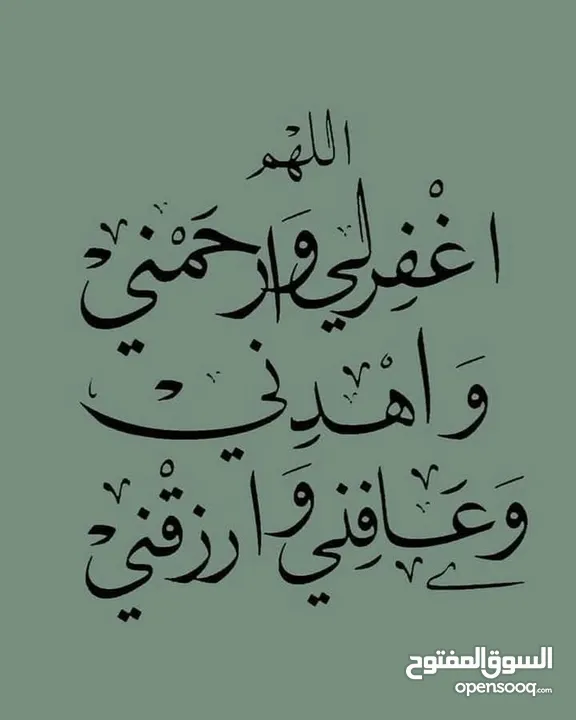 اللهم
اغْفِرلي وَارحَمْني
وَاهْدِني
وَعَافِني وَارزقْني
السوق المفتوح
opensooq.com